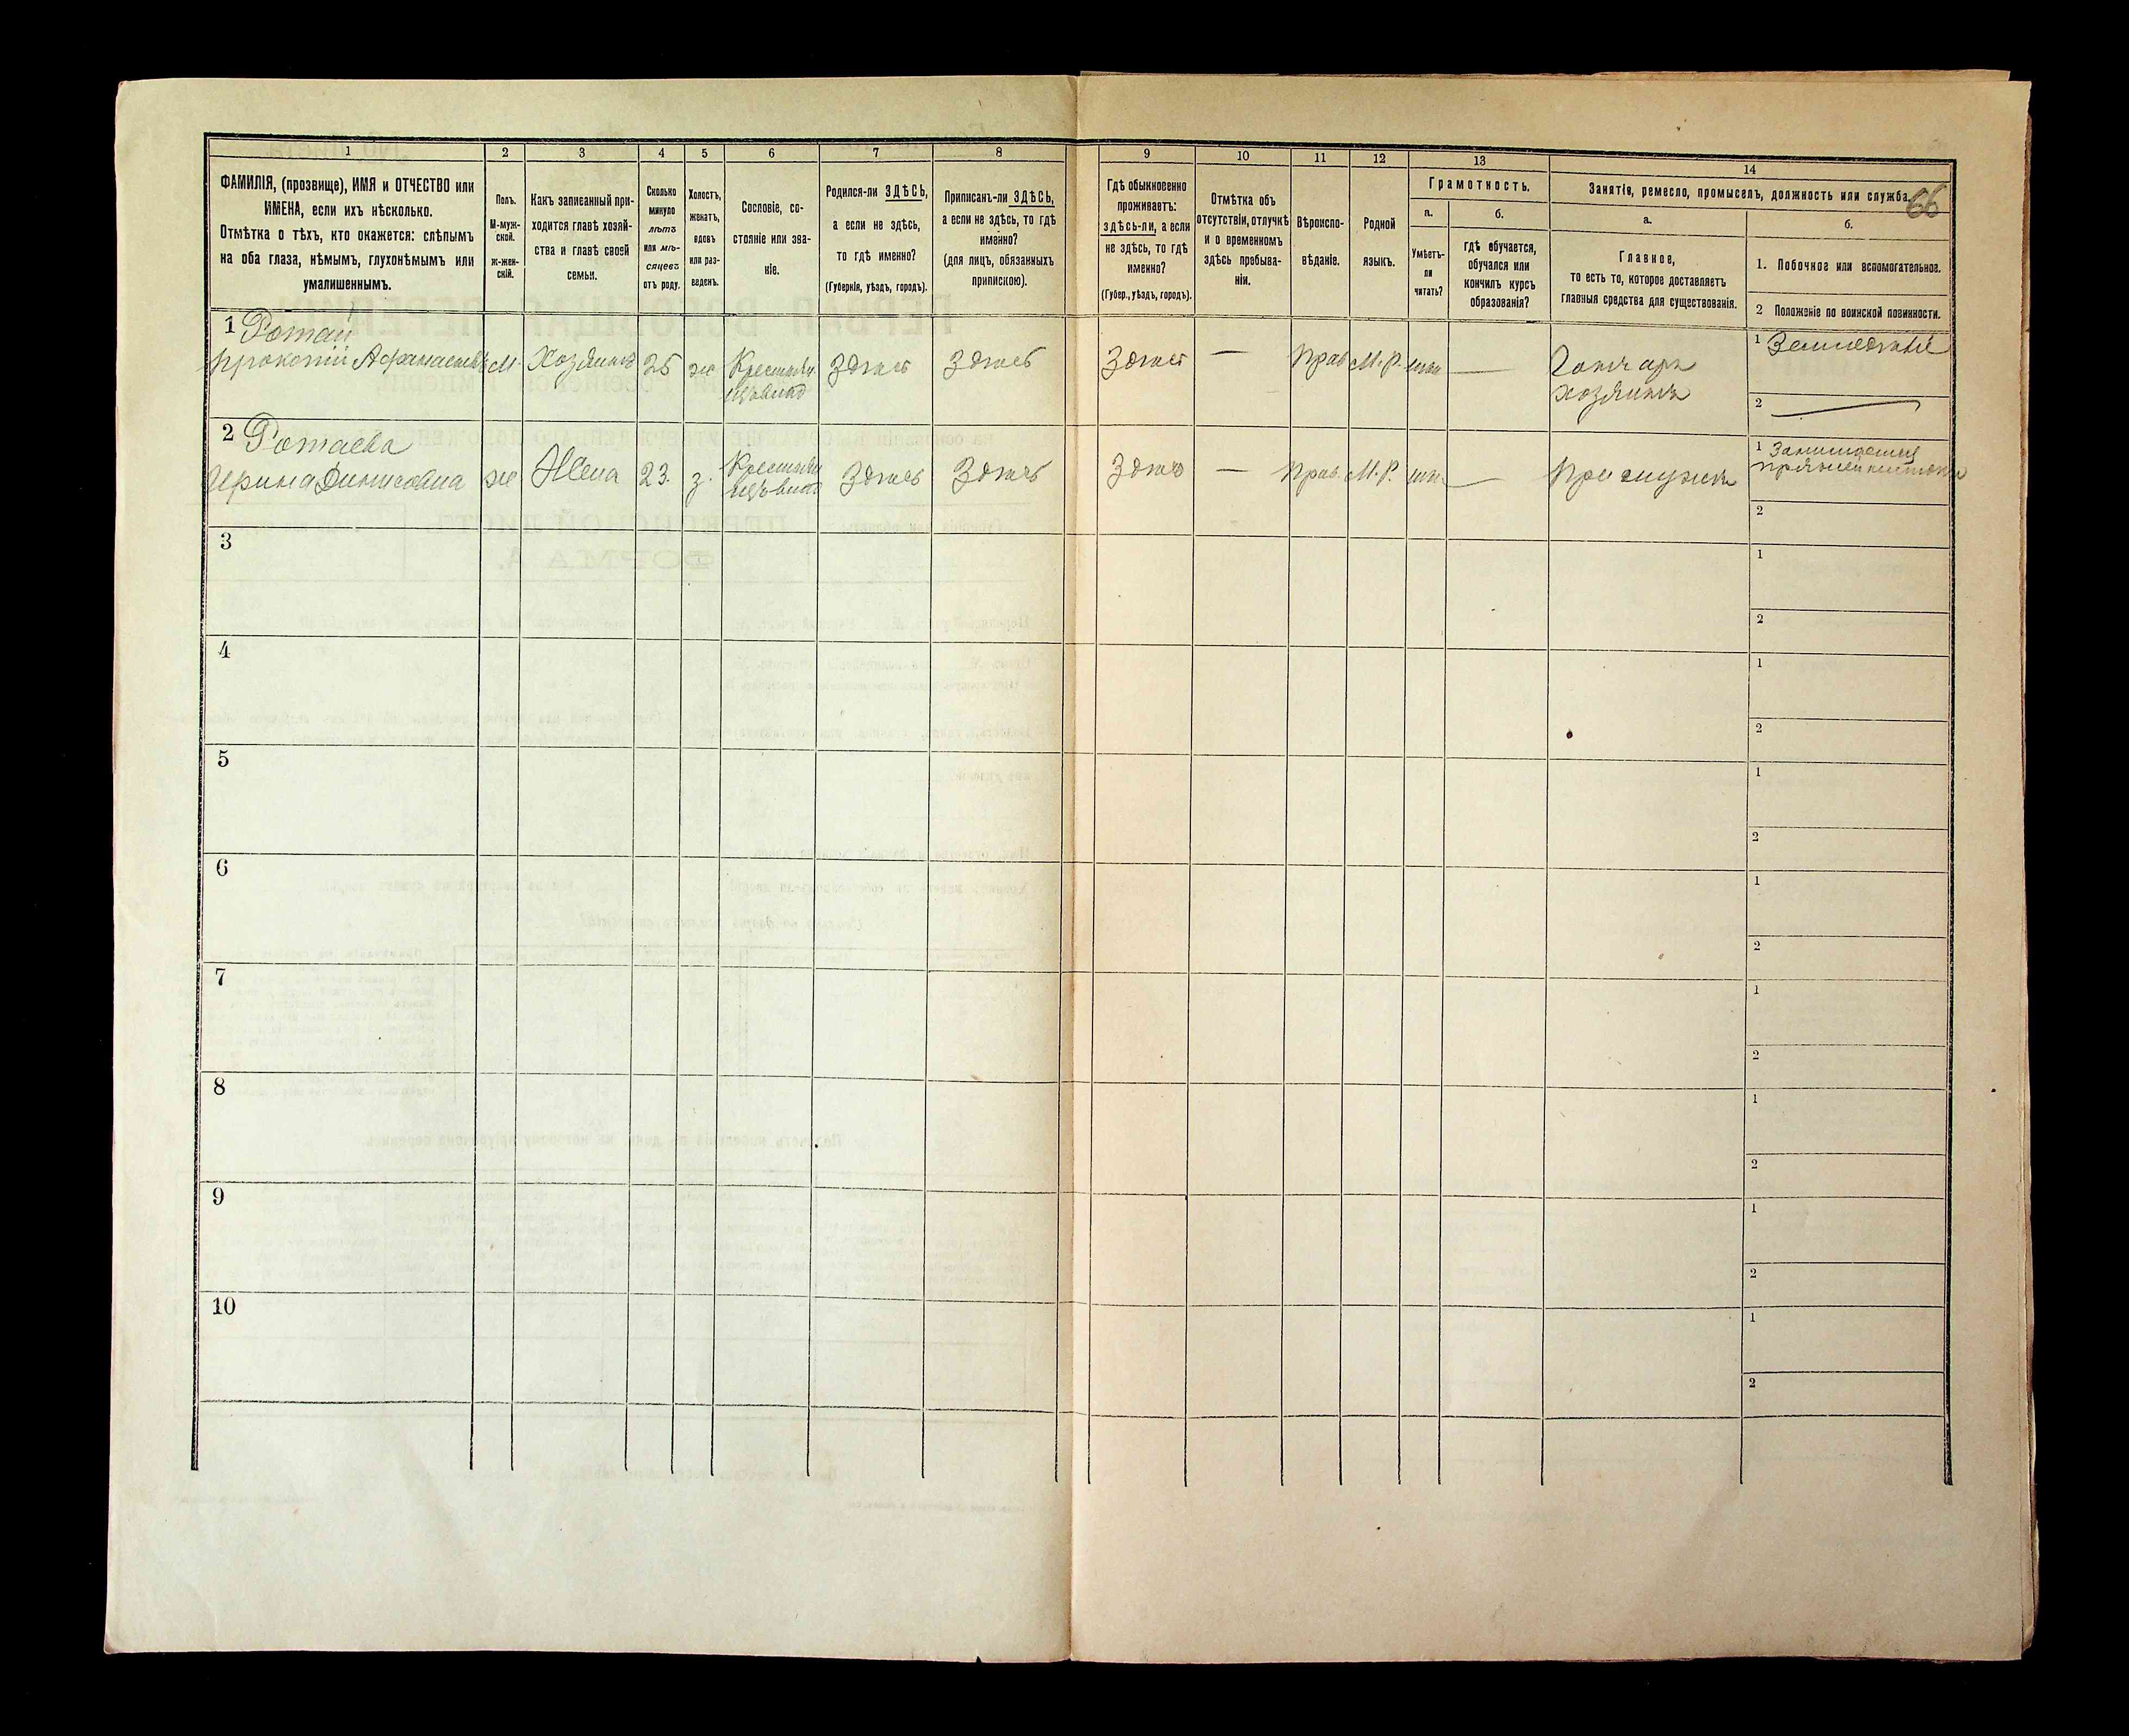 1 2 3 4 5 6 7 8 9 10 11 12 13 14
66
ФАМИЛІЯ, (прозвище), ИМЯ и ОТЧЕСТВО или
ИМЕНА, если ихъ нѣсколько.
Отмѣтка о тѣхъ, кто окажется: слѣпымъ
на оба глаза, нѣмымъ, глухонѣмымъ или
умалишеннымъ.
Полъ.
М-муж-
ской.
ж-жен-
скій.
Какъ записанный при-
ходится главѣ хозяй-
ства и главѣ своей
семьи.
Сколько
минуло
лѣтъ
или мѣ-
сяцевъ
отъ роду.
Холостъ,
женатъ,
вдовъ
или раз-
веденъ.
Сословіе, со-
стояніе или зва-
ніе.
Родился-ли ЗДѢСЬ,
а если не здѣсь,
то гдѣ именно?
(Губернія, уѣздъ, городъ).
Приписанъ-ли ЗДѢСЬ,
а если не здѣсь, то гдѣ
именно?
(для лицъ, обязанныхъ
припискою).
Гдѣ обыкновенно
проживаетъ:
здѣсь-ли, а если
не здѣсь, то гдѣ
именно?
(Губер., уѣздъ, городъ).
Отмѣтка объ
отсутствіи, отлучкѣ
и о временномъ
здѣсь пребыва-
ніи.
Вѣроиспо-
вѣданіе.
Родной
языкъ.
Грамотность.
а.
Умѣетъ-
ли
читать?
б.
гдѣ обучается,
обучался или
кончилъ курсъ
образованія?
Занятіе, ремесло, промыселъ, должность или служба.
а.
Главное,
то есть то, которое доставляетъ
главныя средства для существованія.
б.
1. Побочное или вспомогательное.
2 Положеніе по воинской повинности.
1 Ротай
Прокопій Афанасьевъ М. Хозяинъ 25 ж Крестьян. Здѣсь Здѣсь Здѣсь — Прав М.Р. — Гончаръ
хозяинъ
1 Земледѣліе
2 —
2 Ротаева
Ирина Денисовна ж Жена 23. з. Крестьян Здѣсь Здѣсь Здѣсь — Прав. М.Р. — При мужѣ
1 Занимается
пряжей
2
3 1
2
4 1
2
5 1
2
6 1
2
7 1
2
8 1
2
9 1
2
10 1
2